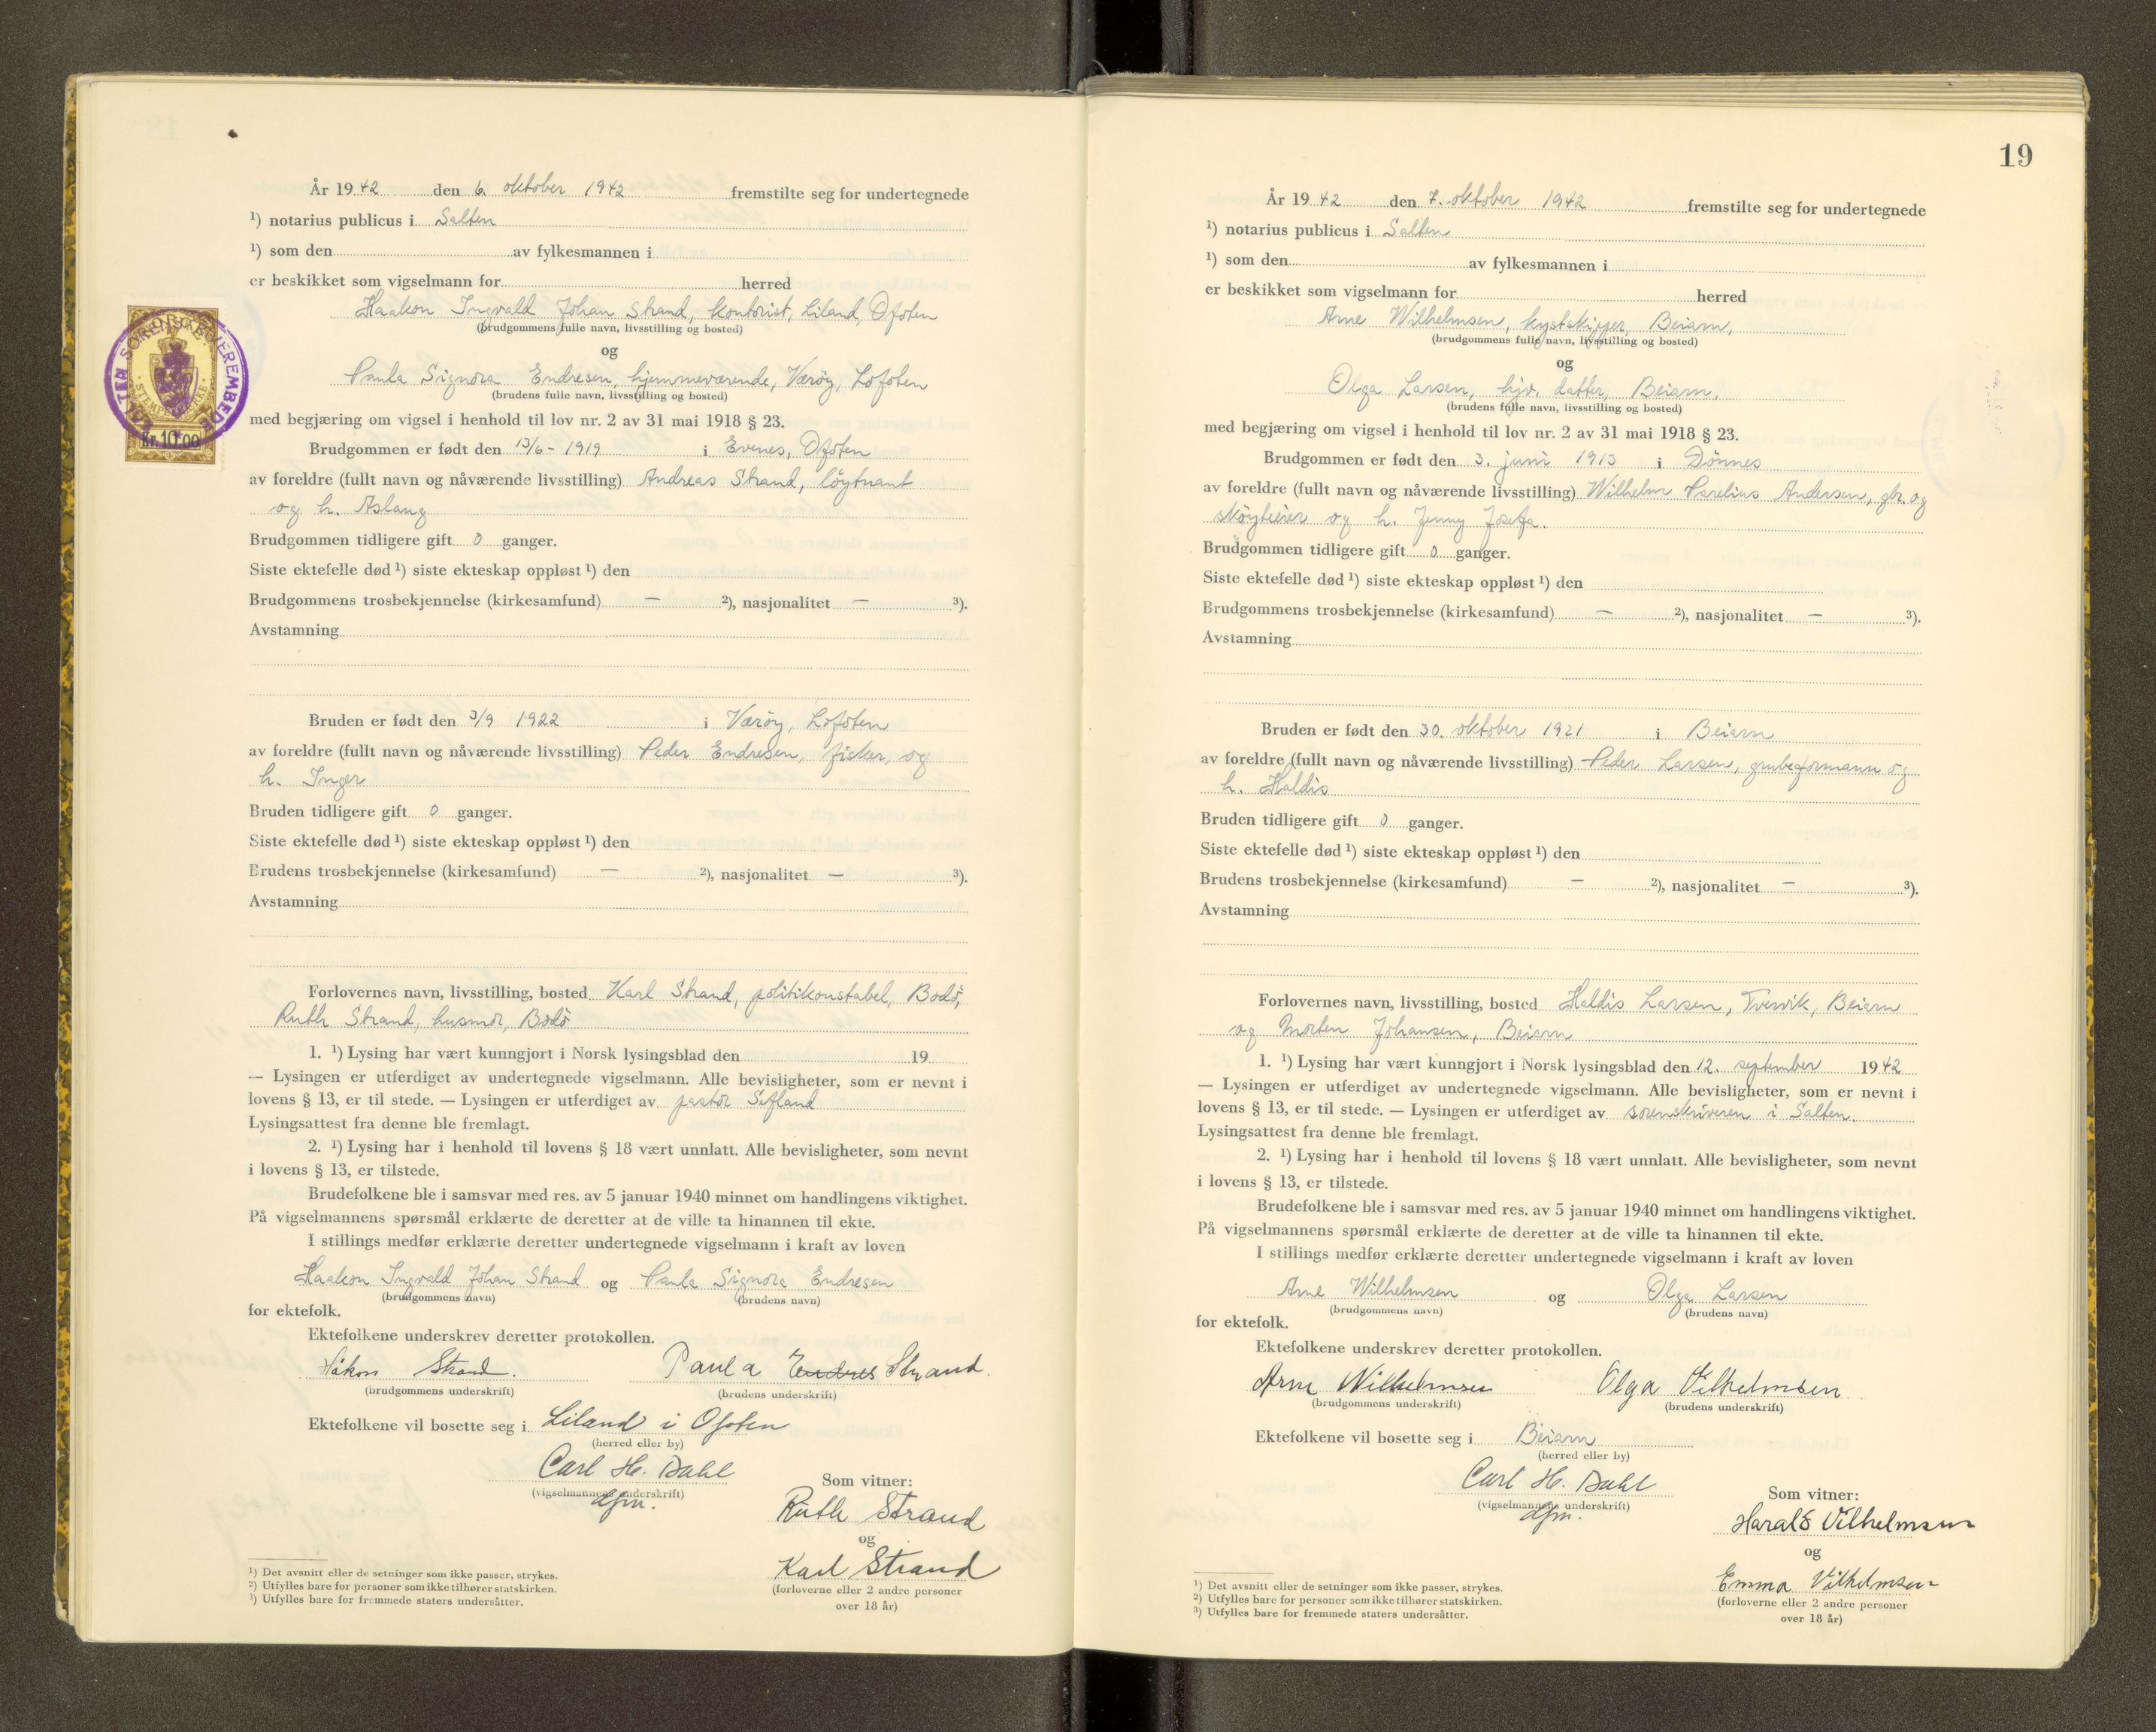 År 1942 den 6. oktober 1942 fremstilte seg for undertegnede
¹) notarius publicus i Salten
¹) som den av fylkesmannen i
er beskikket som vigselmann for herred
Haakon Ingvald Johan Strand, kontorist, Liland, Ofoten
(brudgommens fulle navn, livsstilling og bosted)
og
Paula Signora Endresen, hjemmeværende, Værøy, Lofoten
(brudens fulle navn, livsstilling og bosted)
SALTEN SORENSKRIVEREMBEDE
STEMPELMERKE
Kr. 10.00
med begjæring om vigsel i henhold til lov nr. 2 av 31 mai 1918 § 23.
Brudgommen er født den 13/6 - 1919 i Evenes, Ofoten
av foreldre (fullt navn og nåværende livsstilling) Andreas Strand, löytnant
og h. Aslaug
Brudgommen tidligere gift 0 ganger.
Siste ektefelle død ¹) siste ekteskap oppløst ¹) den
Brudgommens trosbekjennelse (kirkesamfund) — ²), nasjonalitet — ³).
Avstamning
Bruden er født den 3/9 1922 i Værøy, Lofoten
av foreldre (fullt navn og nåværende livsstilling) Peder Endresen, fisker, og
h. Inger
Bruden tidligere gift 0 ganger.
Siste ektefelle død ¹) siste ekteskap oppløst ¹) den
Brudens trosbekjennelse (kirkesamfund) — ²), nasjonalitet — ³).
Avstamning
Forlovernes navn, livsstilling, bosted Karl Strand, politikonstabel, Bodö,
Ruth Strand, husmor, Bodö
1. ¹) Lysing har vært kunngjort i Norsk lysingsblad den 19
— Lysingen er utferdiget av undertegnede vigselmann. Alle bevisligheter, som er nevnt i
lovens § 13, er til stede. — Lysingen er utferdiget av pastor Sefland
Lysingsattest fra denne ble fremlagt.
2. ¹) Lysing har i henhold til lovens § 18 vært unnlatt. Alle bevisligheter, som nevnt
i lovens § 13, er tilstede.
Brudefolkene ble i samsvar med res. av 5 januar 1940 minnet om handlingens viktighet.
På vigselmannens spørsmål erklærte de deretter at de ville ta hinannen til ekte.
I stillings medfør erklærte deretter undertegnede vigselmann i kraft av loven
Haakon Ingvald Johan Strand og Paula Signora Endresen
(brudgommens navn) (brudens navn)
for ektefolk.
Ektefolkene underskrev deretter protokollen.
Håkon Strand. Paula Endres Strand.
(brudgommens underskrift) (brudens underskrift)
Ektefolkene vil bosette seg i Liland i Ofoten
(herred eller by)
Carl H. Dahl
(vigselmannens underskrift)
dfm.
Som vitner:
Ruth Strand
og
Karl Strand
(forloverne eller 2 andre personer
over 18 år)
¹) Det avsnitt eller de setninger som ikke passer, strykes.
²) Utfylles bare for personer som ikke tilhører statskirken.
³) Utfylles bare for fremmede staters undersåtter.
19
År 1942 den 7. oktober 1942 fremstilte seg for undertegnede
¹) notarius publicus i Salten
¹) som den av fylkesmannen i
er beskikket som vigselmann for herred
Arne Wilhelmsen, kystskipper, Beiarn,
(brudgommens fulle navn, livsstilling og bosted)
og
Olga Larsen, hjv. datter, Beiarn,
(brudens fulle navn, livsstilling og bosted)
med begjæring om vigsel i henhold til lov nr. 2 av 31 mai 1918 § 23.
Brudgommen er født den 3. juni 1913 i Dönnes
av foreldre (fullt navn og nåværende livsstilling) Wilhelm Parelius Andersen, gbr. og
sköyteeier og h. Jenny Josefa.
Brudgommen tidligere gift 0 ganger.
Siste ektefelle død ¹) siste ekteskap oppløst ¹) den
Brudgommens trosbekjennelse (kirkesamfund) — ²), nasjonalitet — ³).
Avstamning
Bruden er født den 30. oktober 1921 i Beiarn
av foreldre (fullt navn og nåværende livsstilling) Peder Larsen, grubeformann og
h. Haldis
Bruden tidligere gift 0 ganger.
Siste ektefelle død ¹) siste ekteskap oppløst ¹) den
Brudens trosbekjennelse (kirkesamfund) — ²), nasjonalitet — ³).
Avstamning
Forlovernes navn, livsstilling, bosted Haldis Larsen, Tvervik, Beiarn
og Morten Johansen, Beiarn
1. ¹) Lysing har vært kunngjort i Norsk lysingsblad den 12. september 1942
— Lysingen er utferdiget av undertegnede vigselmann. Alle bevisligheter, som er nevnt i
lovens § 13, er til stede. — Lysingen er utferdiget av sorenskriveren i Salten.
Lysingsattest fra denne ble fremlagt.
2. ¹) Lysing har i henhold til lovens § 18 vært unnlatt. Alle bevisligheter, som nevnt
i lovens § 13, er tilstede.
Brudefolkene ble i samsvar med res. av 5 januar 1940 minnet om handlingens viktighet.
På vigselmannens spørsmål erklærte de deretter at de ville ta hinannen til ekte.
I stillings medfør erklærte deretter undertegnede vigselmann i kraft av loven
Arne Wilhelmsen og Olga Larsen
(brudgommens navn) (brudens navn)
for ektefolk.
Ektefolkene underskrev deretter protokollen.
Arne Wilhelmsen Olga Vilhelmsen
(brudgommens underskrift) (brudens underskrift)
Ektefolkene vil bosette seg i Beiarn
(herred eller by)
Carl H. Dahl
(vigselmannens underskrift)
dfm.
Som vitner:
Harald Vilhelmsen
og
Emma Vilhelmsen
(forloverne eller 2 andre personer
over 18 år)
¹) Det avsnitt eller de setninger som ikke passer, strykes.
²) Utfylles bare for personer som ikke tilhører statskirken.
³) Utfylles bare for fremmede staters undersåtter.